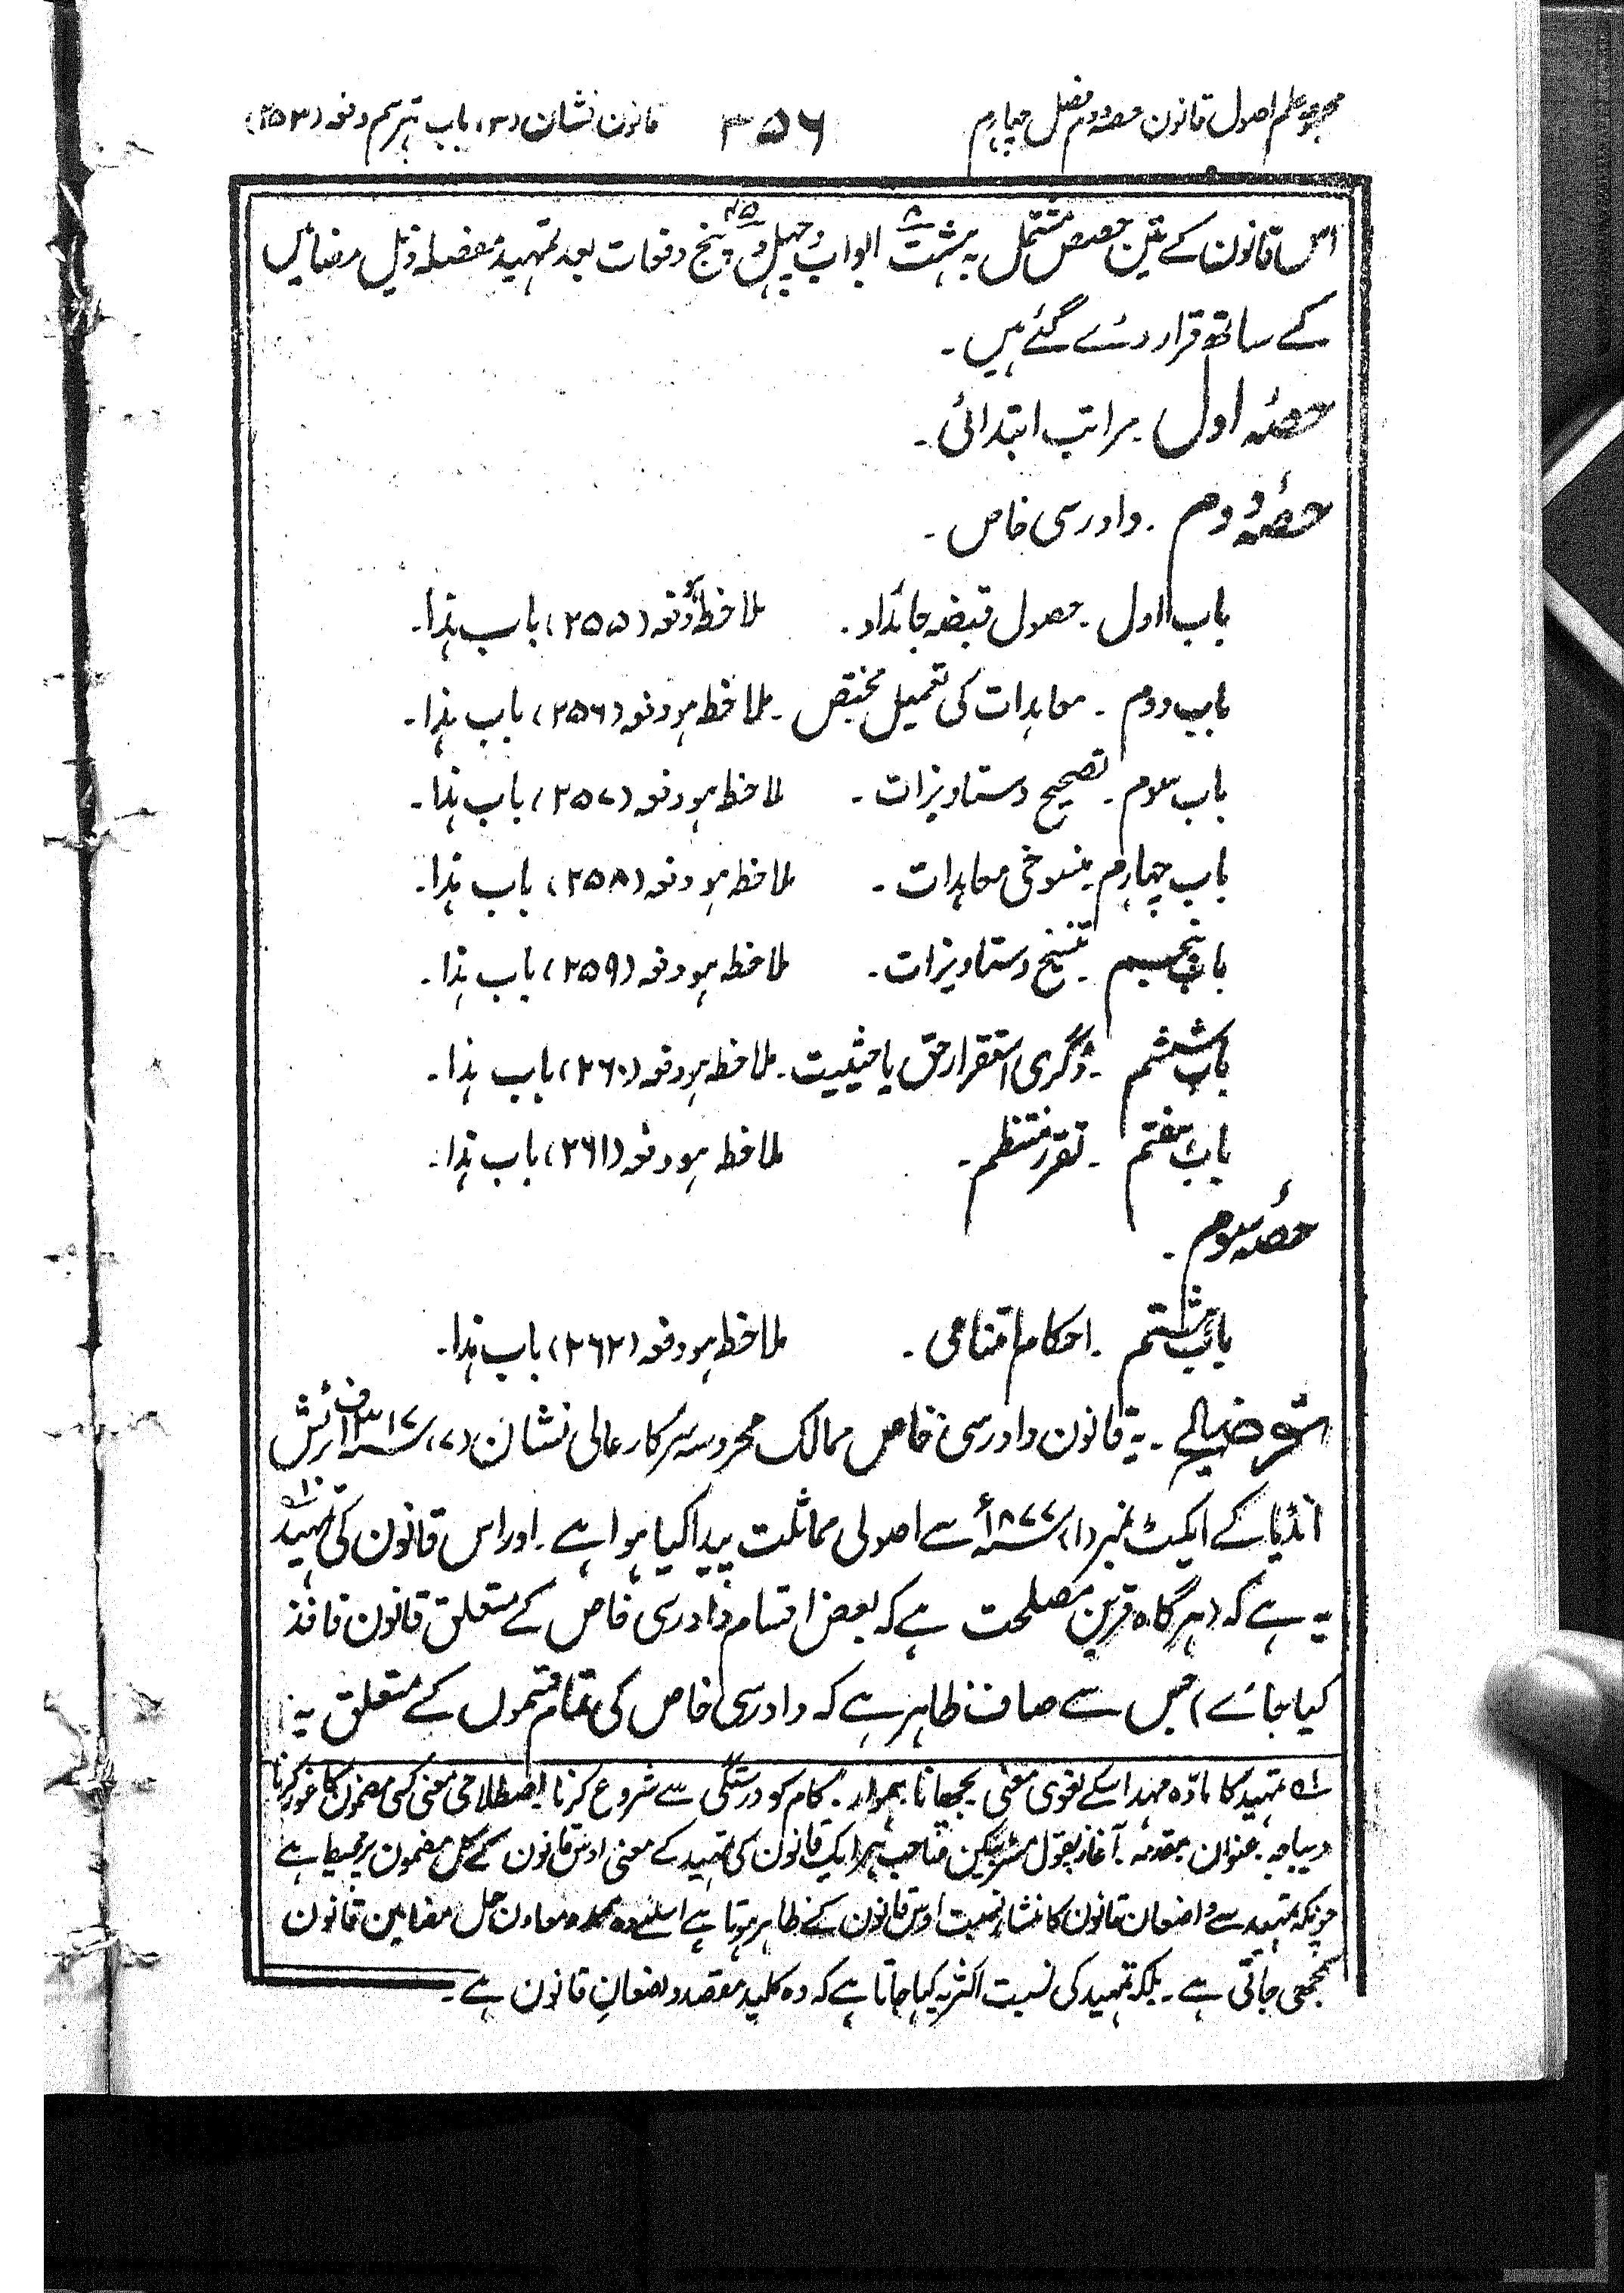 مجموعہ علم اصول قانون حصہ دوم فصل چہارم
۳۵۶
قانون نشان (۳) باب تیرسم دفعہ (۲۵۳)
اس قانون کے تین حصص مشتمل بہ ہشت ۸ ابواب و چہل و پنج ۴۵ دفعات بعد تمہید مفصلہ ذیل مضامین
کے ساتھ قرار دئے گئے ہیں ۔
حصۂ اول ۔ مراتب ابتدائی ۔
حصۂ دوم ۔ دادرسی خاص ۔
باب اول ۔ حصول قبضہ جائداد ۔ ملاحظہ ہو دفعہ (۲۵۵) باب ہذا ۔
باب دوم ۔ معاہدات کی تعمیل مختص ۔ ملاحظہ ہو دفعہ (۲۵۶) باب ہذا ۔
باب سوم ۔ تصحیح دستاویزات ۔ ملاحظہ ہو دفعہ (۲۵۷) باب ہذا ۔
باب چہارم ۔ منسوخی معاہدات ۔ ملاحظہ ہو دفعہ (۲۵۸) باب ہذا ۔
باب پنجسیم ۔ تنسیخ دستاویزات ۔ ملاحظہ ہو دفعہ (۲۵۹) باب ہذا ۔
باب ششم ۔ ڈگری استقرار حق یا حیثیت ۔ ملاحظہ ہو دفعہ (۲۶۰) باب ہذا ۔
باب ہفتم ۔ تقرر منتظم ۔ ملاحظہ ہو دفعہ (۲۶۱) باب ہذا ۔
حصۂ سوم ۔
باب ہشتم ۔ احکام امتناعی ۔ ملاحظہ ہو دفعہ (۲۶۲) باب ہذا ۔
توضیح ۔ یہ قانون دادرسی خاص ممالک محروسہ سرکار عالی نشان (۷) ۱۳۱۷ف برٹش
انڈیا کے ایکٹ نمبر (۱) ۱۸۷۷ء سے اصولی مماثلت پیدا کیا ہوا ہے ۔ اور اس قانون کی تمہید
یہ ہے کہ (ہرگاہ قرین مصلحت ہے کہ بعض اقسام دادرسی خاص کے متعلق قانون نافذ
کیا جائے) جس سے صاف ظاہر ہے کہ دادرسی خاص کی تمام قسموں کے متعلق یہ
تمہید کا مادّہ مہد اسکے لغوی معنی بچھانا ہموار ۔ کام کو درستگی سے شروع کرنا اصطلاحی معنی کسی مضمون کا غور کرنا
دیباچہ ۔ عنوان ۔ مقدمہ ۔ آغاز بقول مسٹر صاحب ہر ایک قانون کی تمہید کے معنی اوس قانون کے کل مضمون پر محیط ہے
چونکہ تمہید سے واضعان قانون کا منشاء نسبت اوس قانون کے ظاہر ہوتا ہے اسلئے وہ عمدہ معاون حل مضامین قانون
سمجھی جاتی ہے ۔ بلکہ تمہید کی نسبت اکثر یہ کہا جاتا ہے کہ وہ کلید مقصد واضعانِ قانون ہے ۔